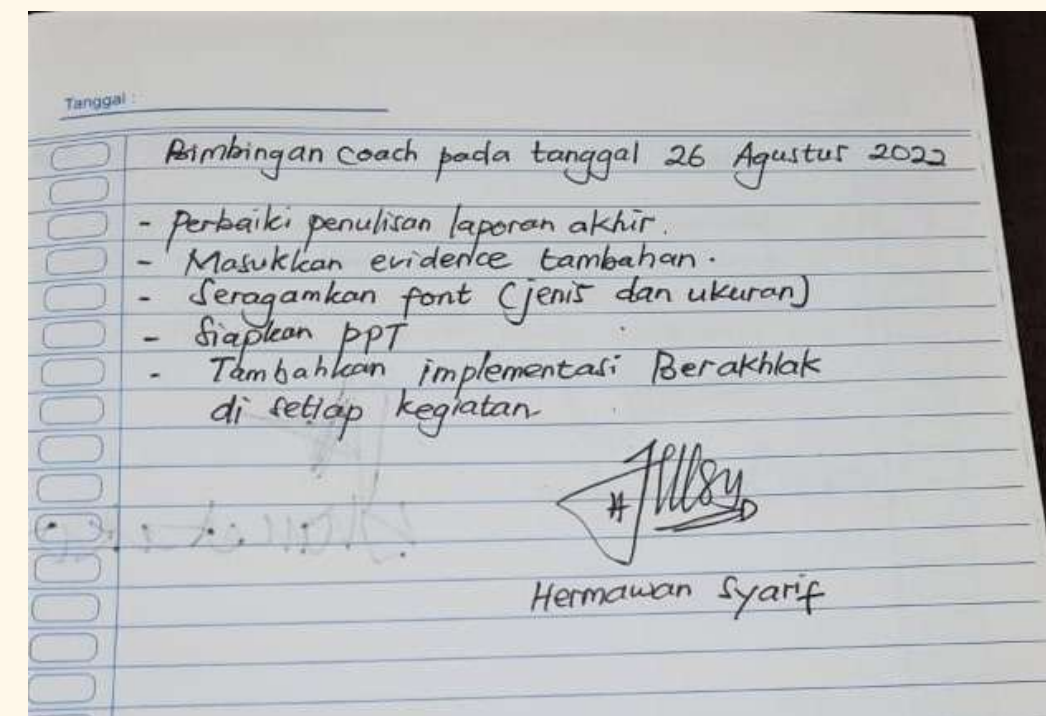 Tanggal :
Bimbingan coach pada tanggal 26 Agustus 2022
- Perbaiki penulisan laporan akhir.
- Masukkan evidence tambahan.
- Seragamkan font (jenis dan ukuran)
- Siapkan PPT
- Tambahkan implementasi Berakhlak
di setiap kegiatan
Hermawan Syarif